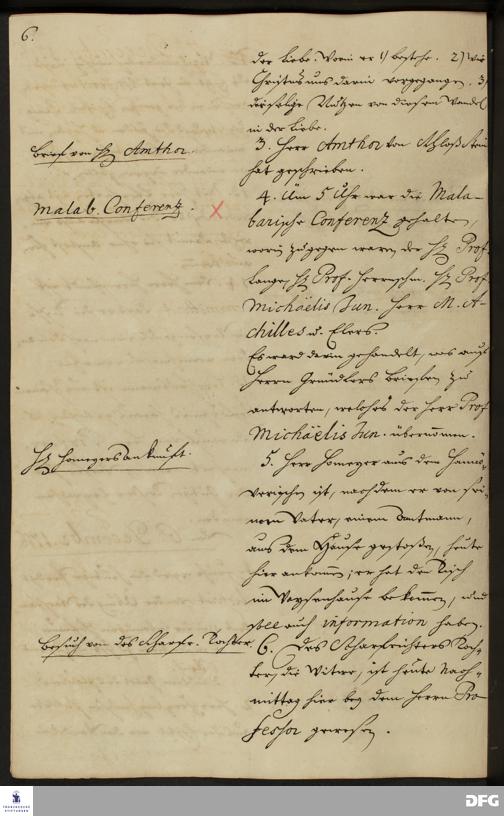 6.
der Liebe. Worin er 1) bestehe. 2) wie
Christus uns darin vorgegangen. 3)
derselbe Nutzen von diesem Wandel
in der Liebe.
Brief von H. Amthor.
3. Herr Amthor von Schloß Stein
hat geschrieben.
malab. Conferentz.
4. Um 5 Uhr war die Mala-
barische Conferenz gehalten,
worin zugegen waren der H. Prof.
Lange, H. Prof. Herrnschm. H. Prof.
Michaëlis Jun. Herr M. A-
chilles u. Elers.
Es ward darin gehandelt, was auf
Herrn Gründlers Briefen zu
antworten, welches der Herr Prof.
Michaëlis Jun. übernommen.
H. Homeyers ankunft.
5. Herr Homeyer aus dem Hannö-
verischen ist, nachdem er von sei-
nem Vater, einem Amtmann,
aus dem Hause gestoßen, heute
hier ankommen; er hat den Tisch
im Waysenhause bekommen, und
soll auch information haben.
Besuch von des Scharfr. Tochter.
6. Des Scharfrichters Toch-
ter, die Witwe, ist heute Nach-
mittag hier bey dem Herrn Pro-
fessor gewesen.
FRANCKESCHE
STIFTUNGEN
DFG